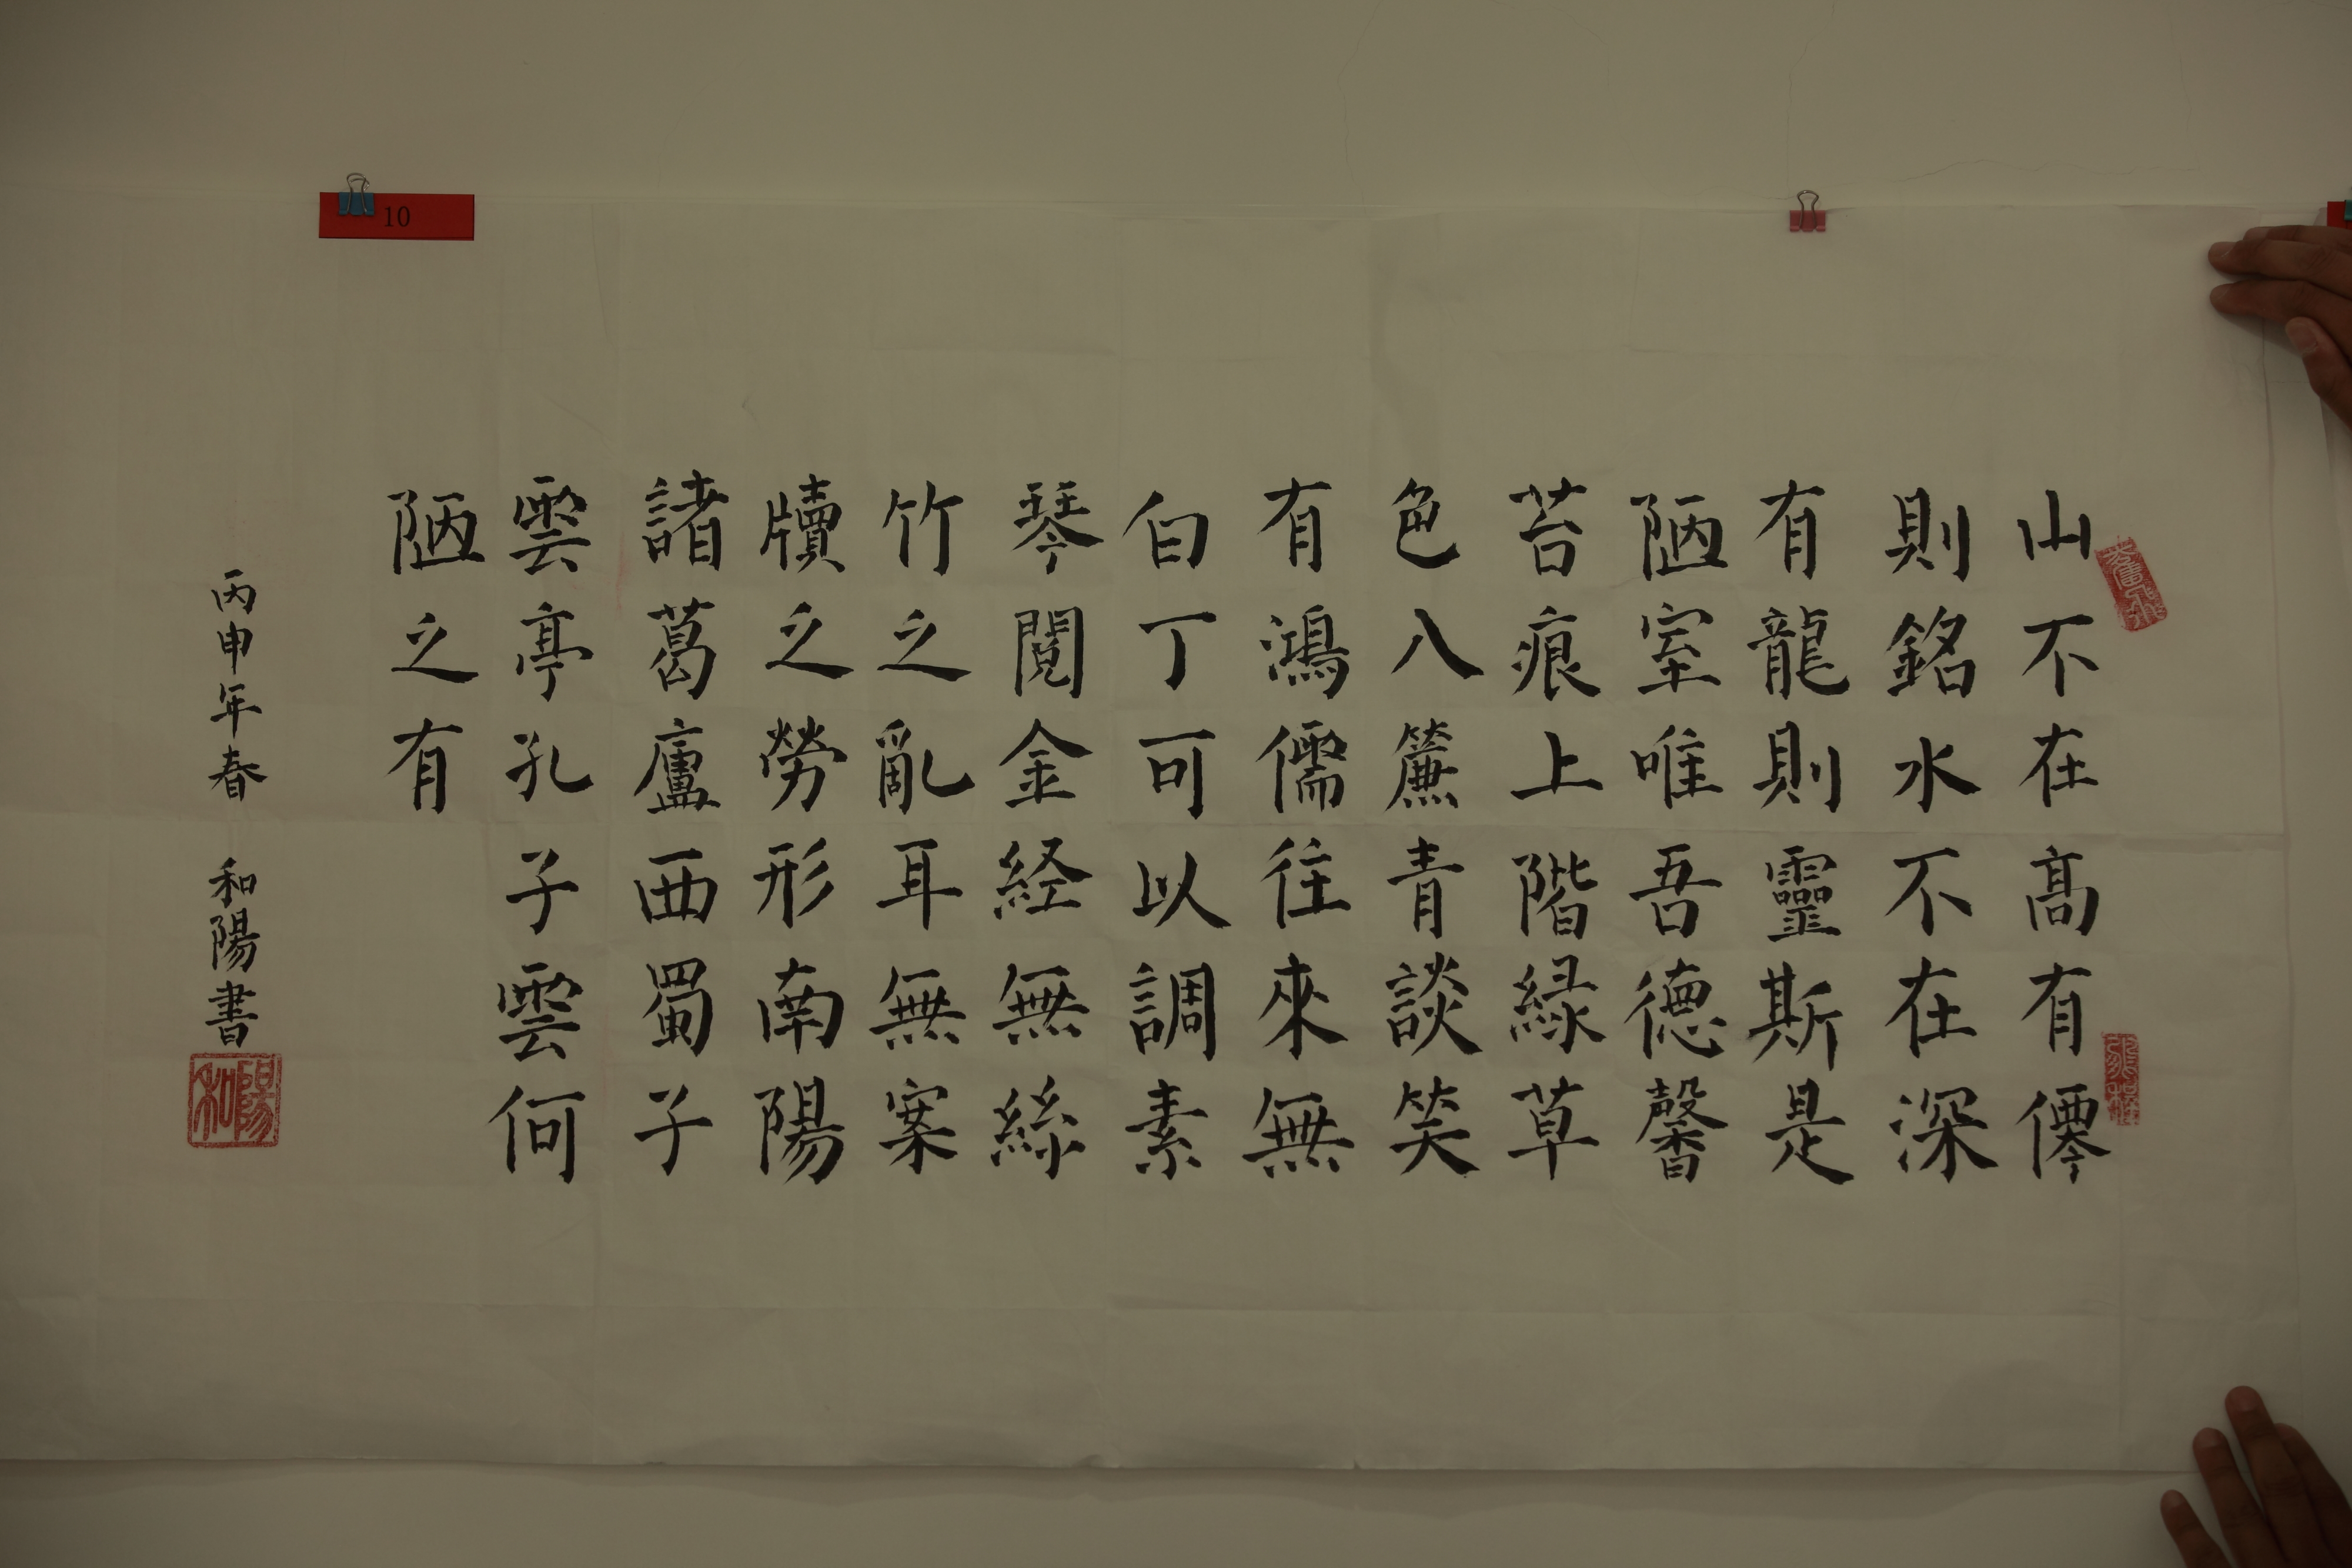 10
山不在髙有僊
則銘水不在深
有龍則靈斯是
陋室唯吾徳馨
苔痕上階緑草
色八簾青談笑
有鴻儒往來無
白丁可以調素
琴閱金経無絲
竹之亂耳無案
牘之勞形南陽
諸葛廬西蜀子
雲亭孔子雲何
陋之有
丙申年春 和陽書
陽和